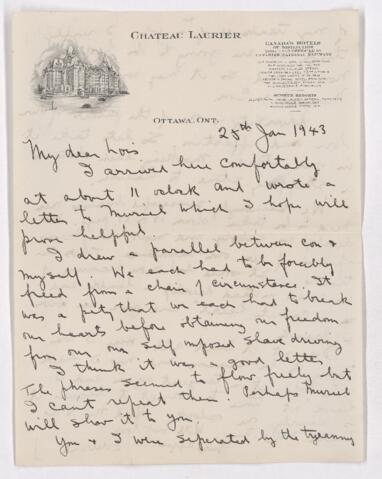 CHATEAU LAURIER
CANADA'S HOTELS
OF DISTINCTION
CANADIAN NATIONAL RAILWAYS
SUMMER RESORTS
OTTAWA, ONT.
25th Jan 1943
My dear Lois
I arrived here comfortably
at about 11 oclock and wrote a
letter to Muriel which I hope will
prove helpful.
I drew a parallel between you &
myself. We each had to be forcibly
freed from a chain of circumstances. It
was a pity that we each had to break
our hearts before obtaining our freedom
from our own self imposed slave driving
I think it was a good letter
The phrases seemed to flow freely but
I can't repeat them. Perhaps Muriel
will show it to you
You & I were seperated by the tyranny